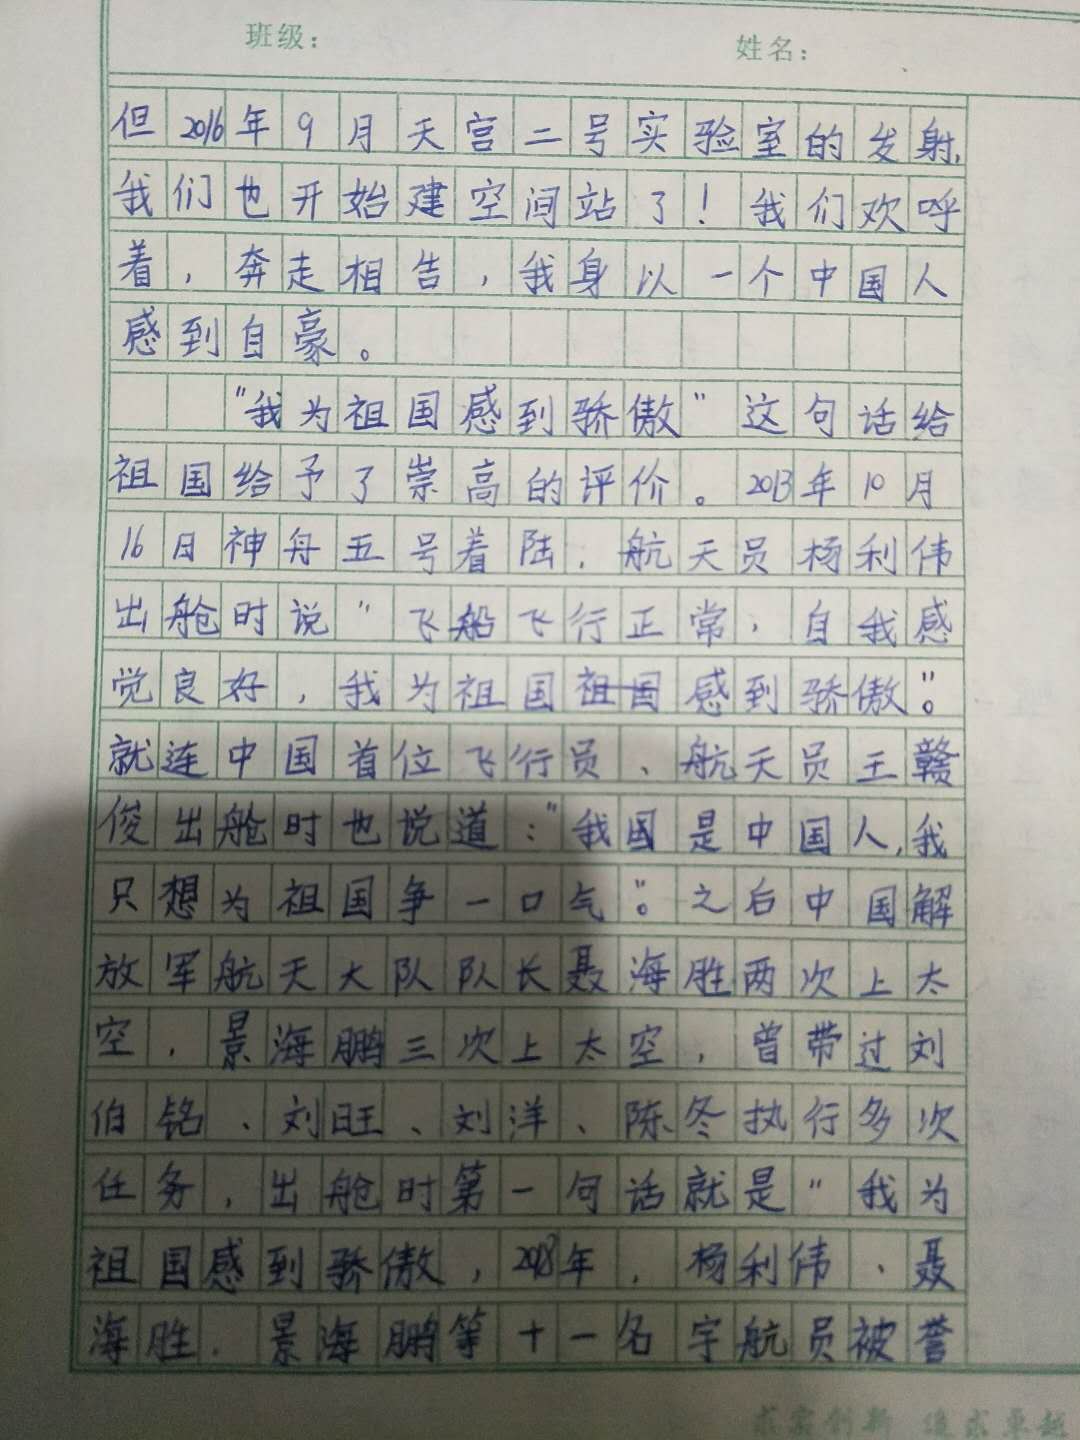 班级： 姓名：
但2016年9月天宫二号实验室的发射，
我们也开始建空间站了！我们欢呼
着，奔走相告，我身以一个中国人
感到自豪。
"我为祖国感到骄傲"这句话给
祖国给予了崇高的评价。2013年10月
16日神舟五号着陆，航天员杨利伟
出舱时说"飞船飞行正常，自我感
觉良好，我为祖国祖国感到骄傲"。
就连中国首位飞行员、航天员王赣
俊出舱时也说道："我国是中国人，我
只想为祖国争一口气"。之后中国解
放军航天大队队长聂海胜两次上太
空，景海鹏三次上太空，曾带过刘
伯铭、刘旺、刘洋、陈冬执行多次
任务，出舱时第一句话就是"我为
祖国感到骄傲，2018年，杨利伟、聂
海胜．景海鹏等十一名宇航员被誉
求实创新 追求卓越